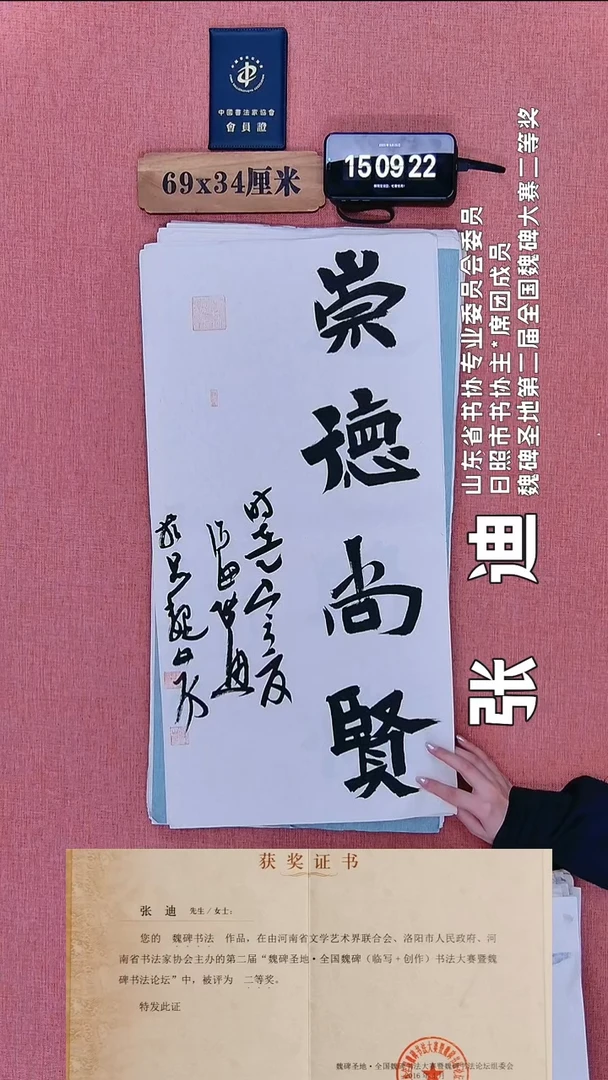 中國書法家協會
會員證
69x34厘米
15 09 22
崇德尚賢
山东省书协专业委员会委员
日照市书协主*席团成员
魏碑圣地第二届全国魏碑大赛二等奖
张 迪
获奖证书
张 迪 先生/女士:
您的 魏碑书法 作品,在由河南省文学艺术界联合会、洛阳市人民政府、河
南省书法家协会主办的第二届“魏碑圣地·全国魏碑(临写+创作)书法大赛暨魏
碑书法论坛”中,被评为 二等奖。
特发此证
魏碑圣地·全国魏碑书法大赛暨魏碑书法论坛组委会